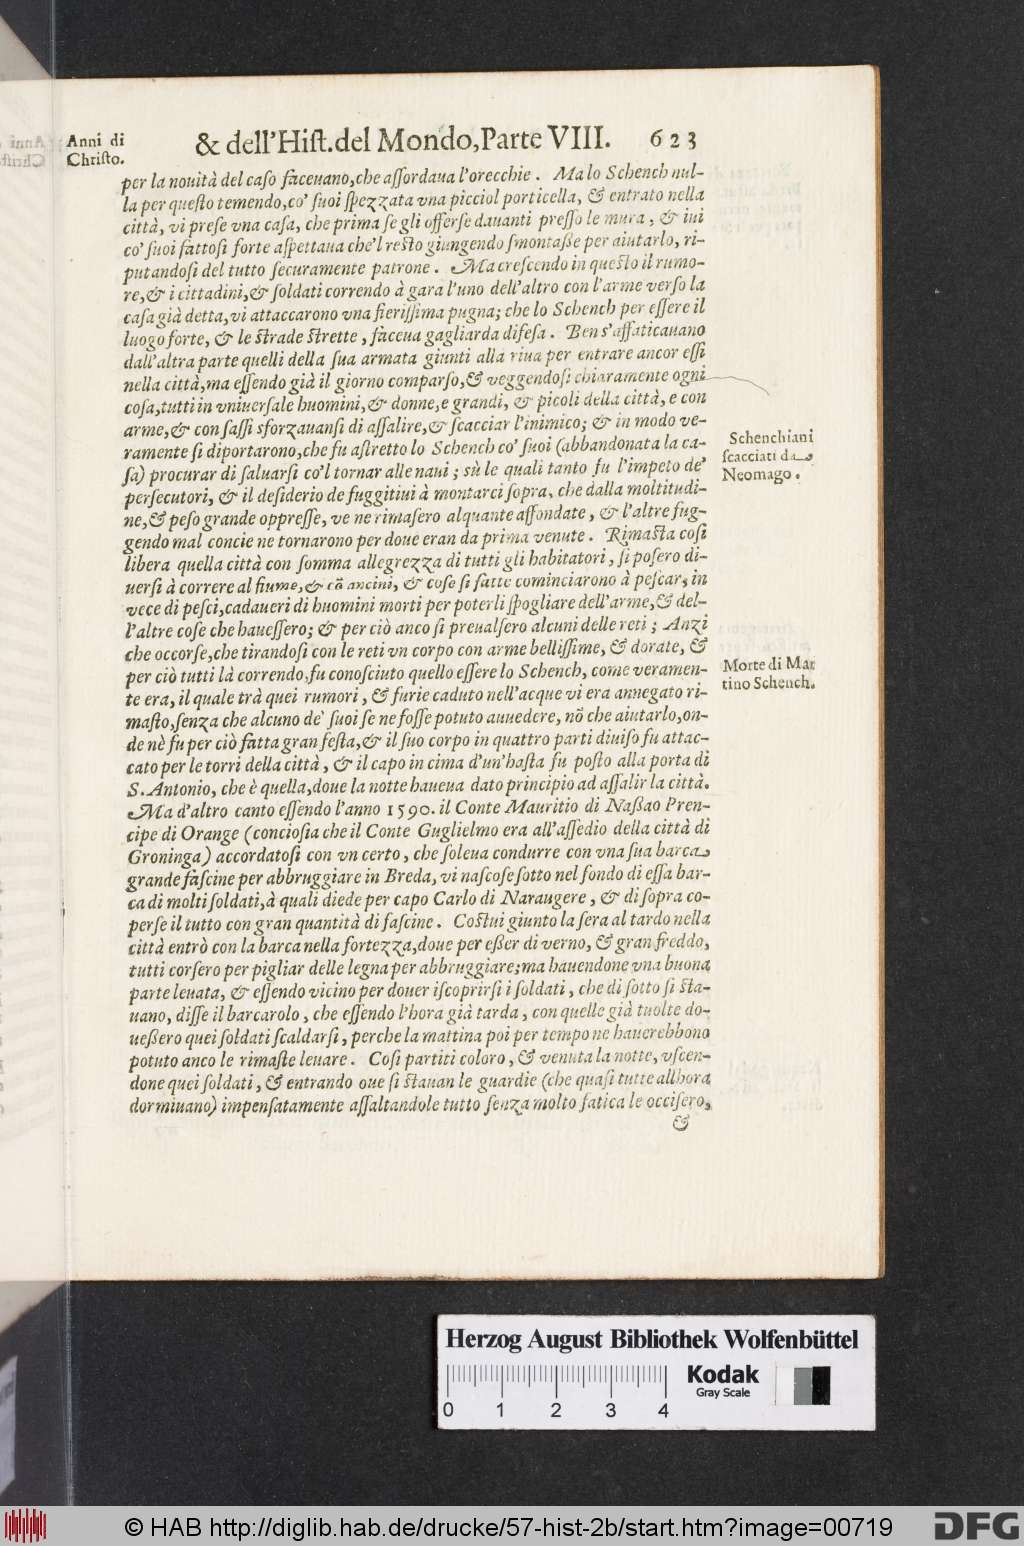 Anni di
Christo.
& dell'Hist. del Mondo, Parte VIII. 623
per la nouità del caso faceuano, che assordaua l'orecchie. Ma lo Schench nul-
la per questo temendo, co' suoi spezzata vna picciol porticella, & entrato nella
città, vi prese vna casa, che prima se gli offerse dauanti presso le mura, & iui
co' suoi fattosi forte aspettaua che'l resto giungendo smontasse per aiutarlo, ri-
putandosi del tutto securamente patrone. Ma crescendo in questo il rumo-
re, & i cittadini, & soldati correndo à gara l'uno dell'altro con l'arme verso la
casa già detta, vi attaccarono vna fierissima pugna; che lo Schench per essere il
luogo forte, & le strade strette, faceua gagliarda difesa. Ben s'affaticauano
dall'altra parte quelli della sua armata giunti alla riua per entrare ancor essi
nella città, ma essendo già il giorno comparso, & veggendosi chiaramente ogni
cosa, tutti in vniuersale huomini, & donne, e grandi, & picoli della città, e con
arme, & con sassi sforzauansi di assalire, & scacciar l'inimico; & in modo ve-
ramente si diportarono, che fu astretto lo Schench co' suoi (abbandonata la ca-
sa) procurar di saluarsi co'l tornar alle naui; sù le quali tanto fu l'impeto de'
persecutori, & il desiderio de fuggitiui à montarci sopra, che dalla moltitudi-
ne, & peso grande oppresse, ve ne rimasero alquante affondate, & l'altre fug-
gendo mal concie ne tornarono per doue eran da prima venute. Rimasta cosi
libera quella città con somma allegrezza di tutti gli habitatori, si posero di-
uersi à correre al fiume, & cō ancini, & cose si fatte cominciarono à pescar, in
vece di pesci, cadaueri di huomini morti per poterli spogliare dell'arme, & del-
l'altre cose che hauessero; & per ciò anco si preualsero alcuni delle reti; Anzi
che occorse, che tirandosi con le reti vn corpo con arme bellissime, & dorate, &
per ciò tutti là correndo, fu conosciuto quello essere lo Schench, come veramen-
te era, il quale trà quei rumori, & furie caduto nell'acque vi era annegato ri-
masto, senza che alcuno de' suoi se ne fosse potuto auuedere, nō che aiutarlo, on-
de nè fu per ciò fatta gran festa, & il suo corpo in quattro parti diuiso fu attac-
cato per le torri della città, & il capo in cima d'un'hasta fu posto alla porta di
S. Antonio, che è quella, doue la notte haueua dato principio ad assalir la città.
Ma d'altro canto essendo l'anno 1590. il Conte Mauritio di Naßao Pren-
cipe di Orange (conciosia che il Conte Guglielmo era all'assedio della città di
Groninga) accordatosi con vn certo, che soleua condurre con vna sua barca
grande fascine per abbruggiare in Breda, vi nascose sotto nel fondo di essa bar-
ca di molti soldati, à quali diede per capo Carlo di Naraugere, & di sopra co-
perse il tutto con gran quantità di fascine. Costui giunto la sera al tardo nella
città entrò con la barca nella fortezza, doue per eßer di verno, & gran freddo,
tutti corsero per pigliar delle legna per abbruggiare; ma hauendone vna buona
parte leuata, & essendo vicino per douer iscoprirsi i soldati, che di sotto si sta-
uano, disse il barcarolo, che essendo l'hora già tarda, con quelle già tuolte do-
ueßero quei soldati scaldarsi, perche la mattina poi per tempo ne hauerebbono
potuto anco le rimaste leuare. Cosi partiti coloro, & venuta la notte, vscen-
done quei soldati, & entrando oue si stauan le guardie (che quasi tutte allhora
dormiuano) impensatamente assaltandole tutto senza molto fatica le occisero,
&
Schenchiani
scacciati da
Neomago.
Morte di Mar
tino Schench.
Herzog August Bibliothek Wolfenbüttel
0 1 2 3 4
Kodak
Gray Scale
© HAB http://diglib.hab.de/drucke/57-hist-2b/start.htm?image=00719
DFG